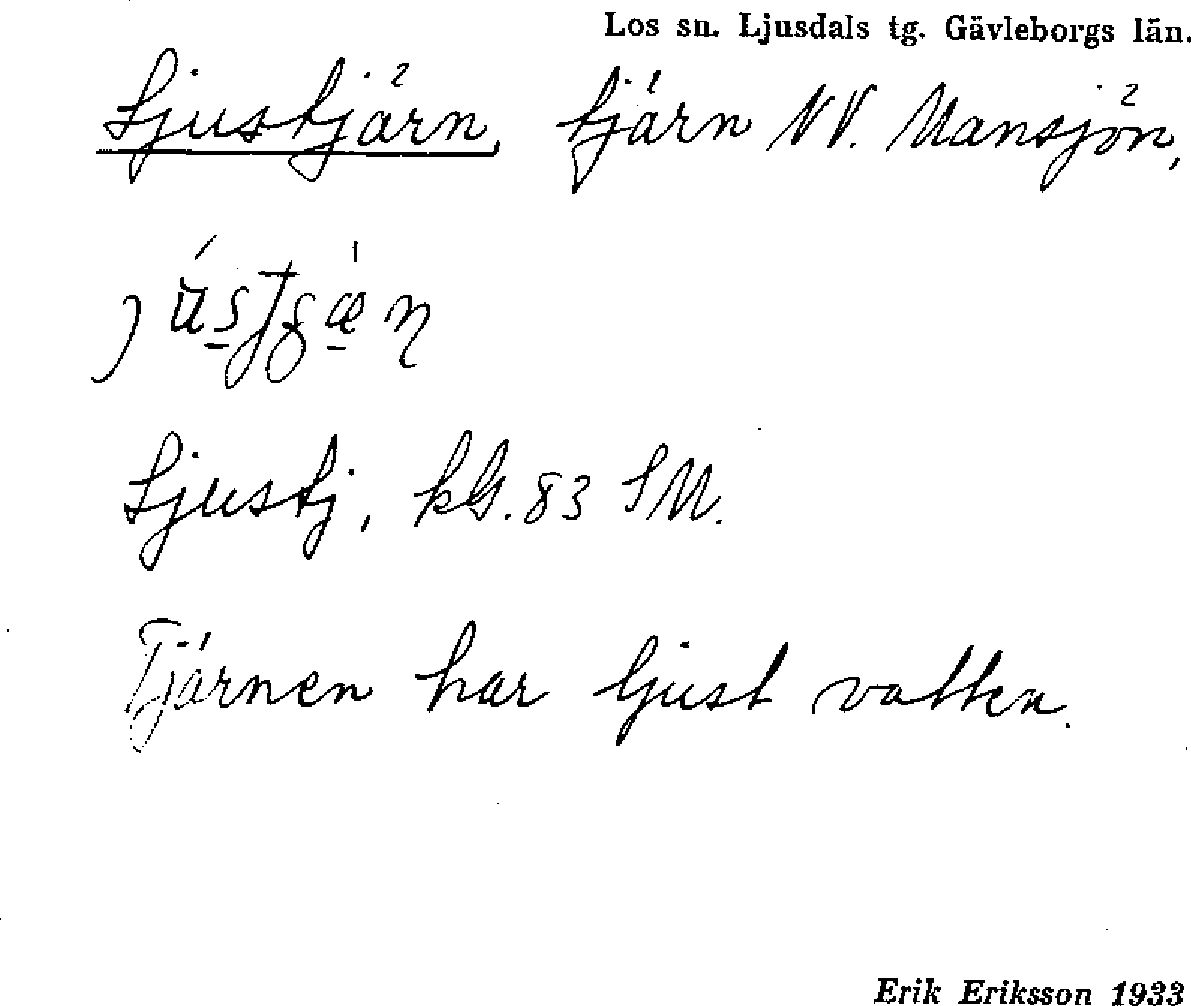 Los sn. Ljusdals tg. Gävleborgs län.
Ljustjärn, tjärn NV. Mansjön,
Ljustj, kG. 83 SM.
Tjärnen har ljust vatten.
Erik Eriksson 1933